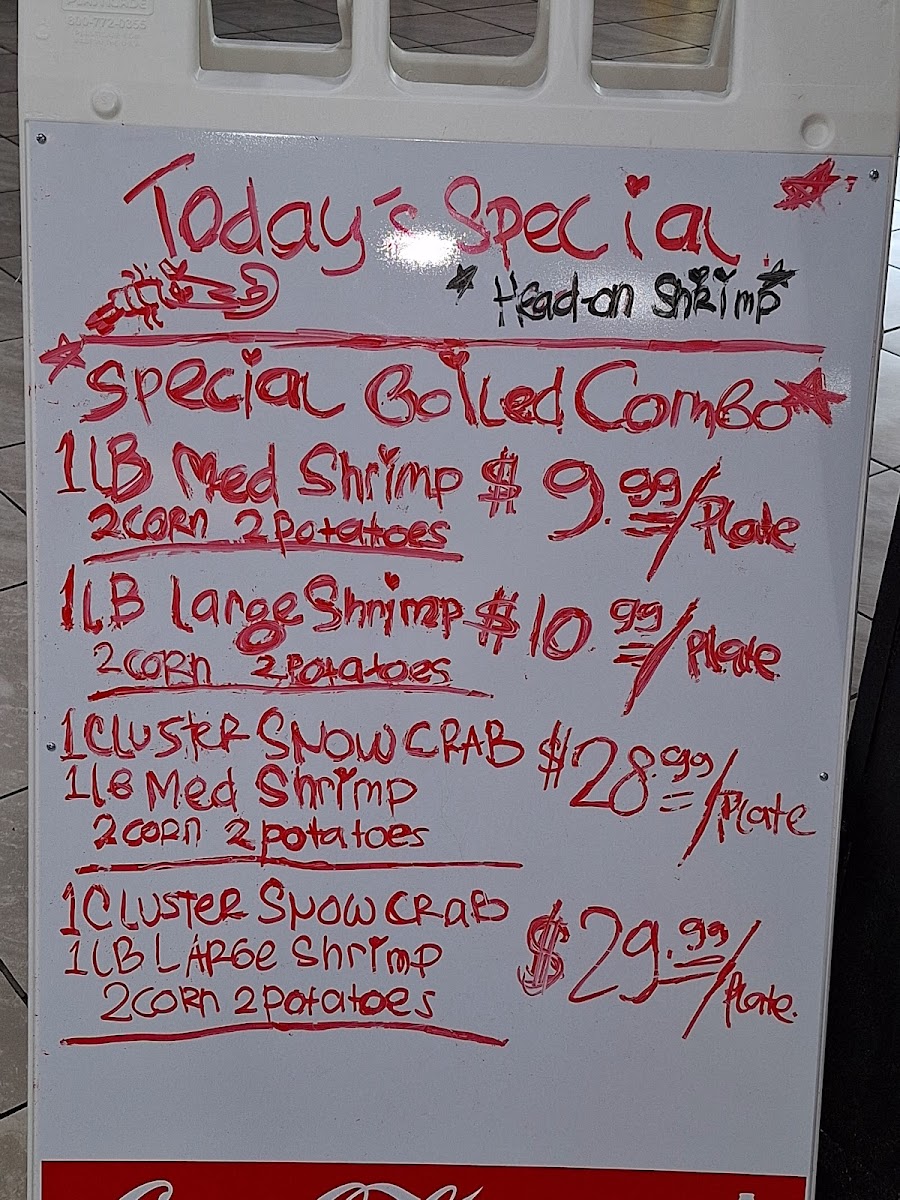 PLASTICADE
800-772-0355
Today's Special
*Head-on Shrimp*
Special Boiled Combo
1LB Med Shrimp $9.99/Plate
2corn 2potatoes
1LB Large Shrimp $10.99/Plate
2corn 2potatoes
1CLUSTER SNOW CRAB $28.99/Plate
1LB Med Shrimp
2corn 2potatoes
1CLUSTER SNOW CRAB
1LB LARGE Shrimp $29.99/Plate.
2corn 2potatoes